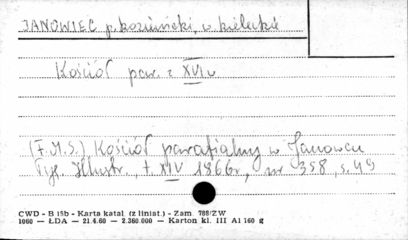 JANOWIEC p. kozienicki, w. kielecki
Kościół par. z XVI w
(F.M.S.) Kościół parafialny w Janowcu
Tyg. Illustr., t. XIV 1866r, nr 358, s. 49
CWD - B 15b - Karta katal. (z liniat.) - Zam. 788/ZW
1060 — ŁDA — 21.4.60 — 2.360.000 — Karton kl. III A1 160 g